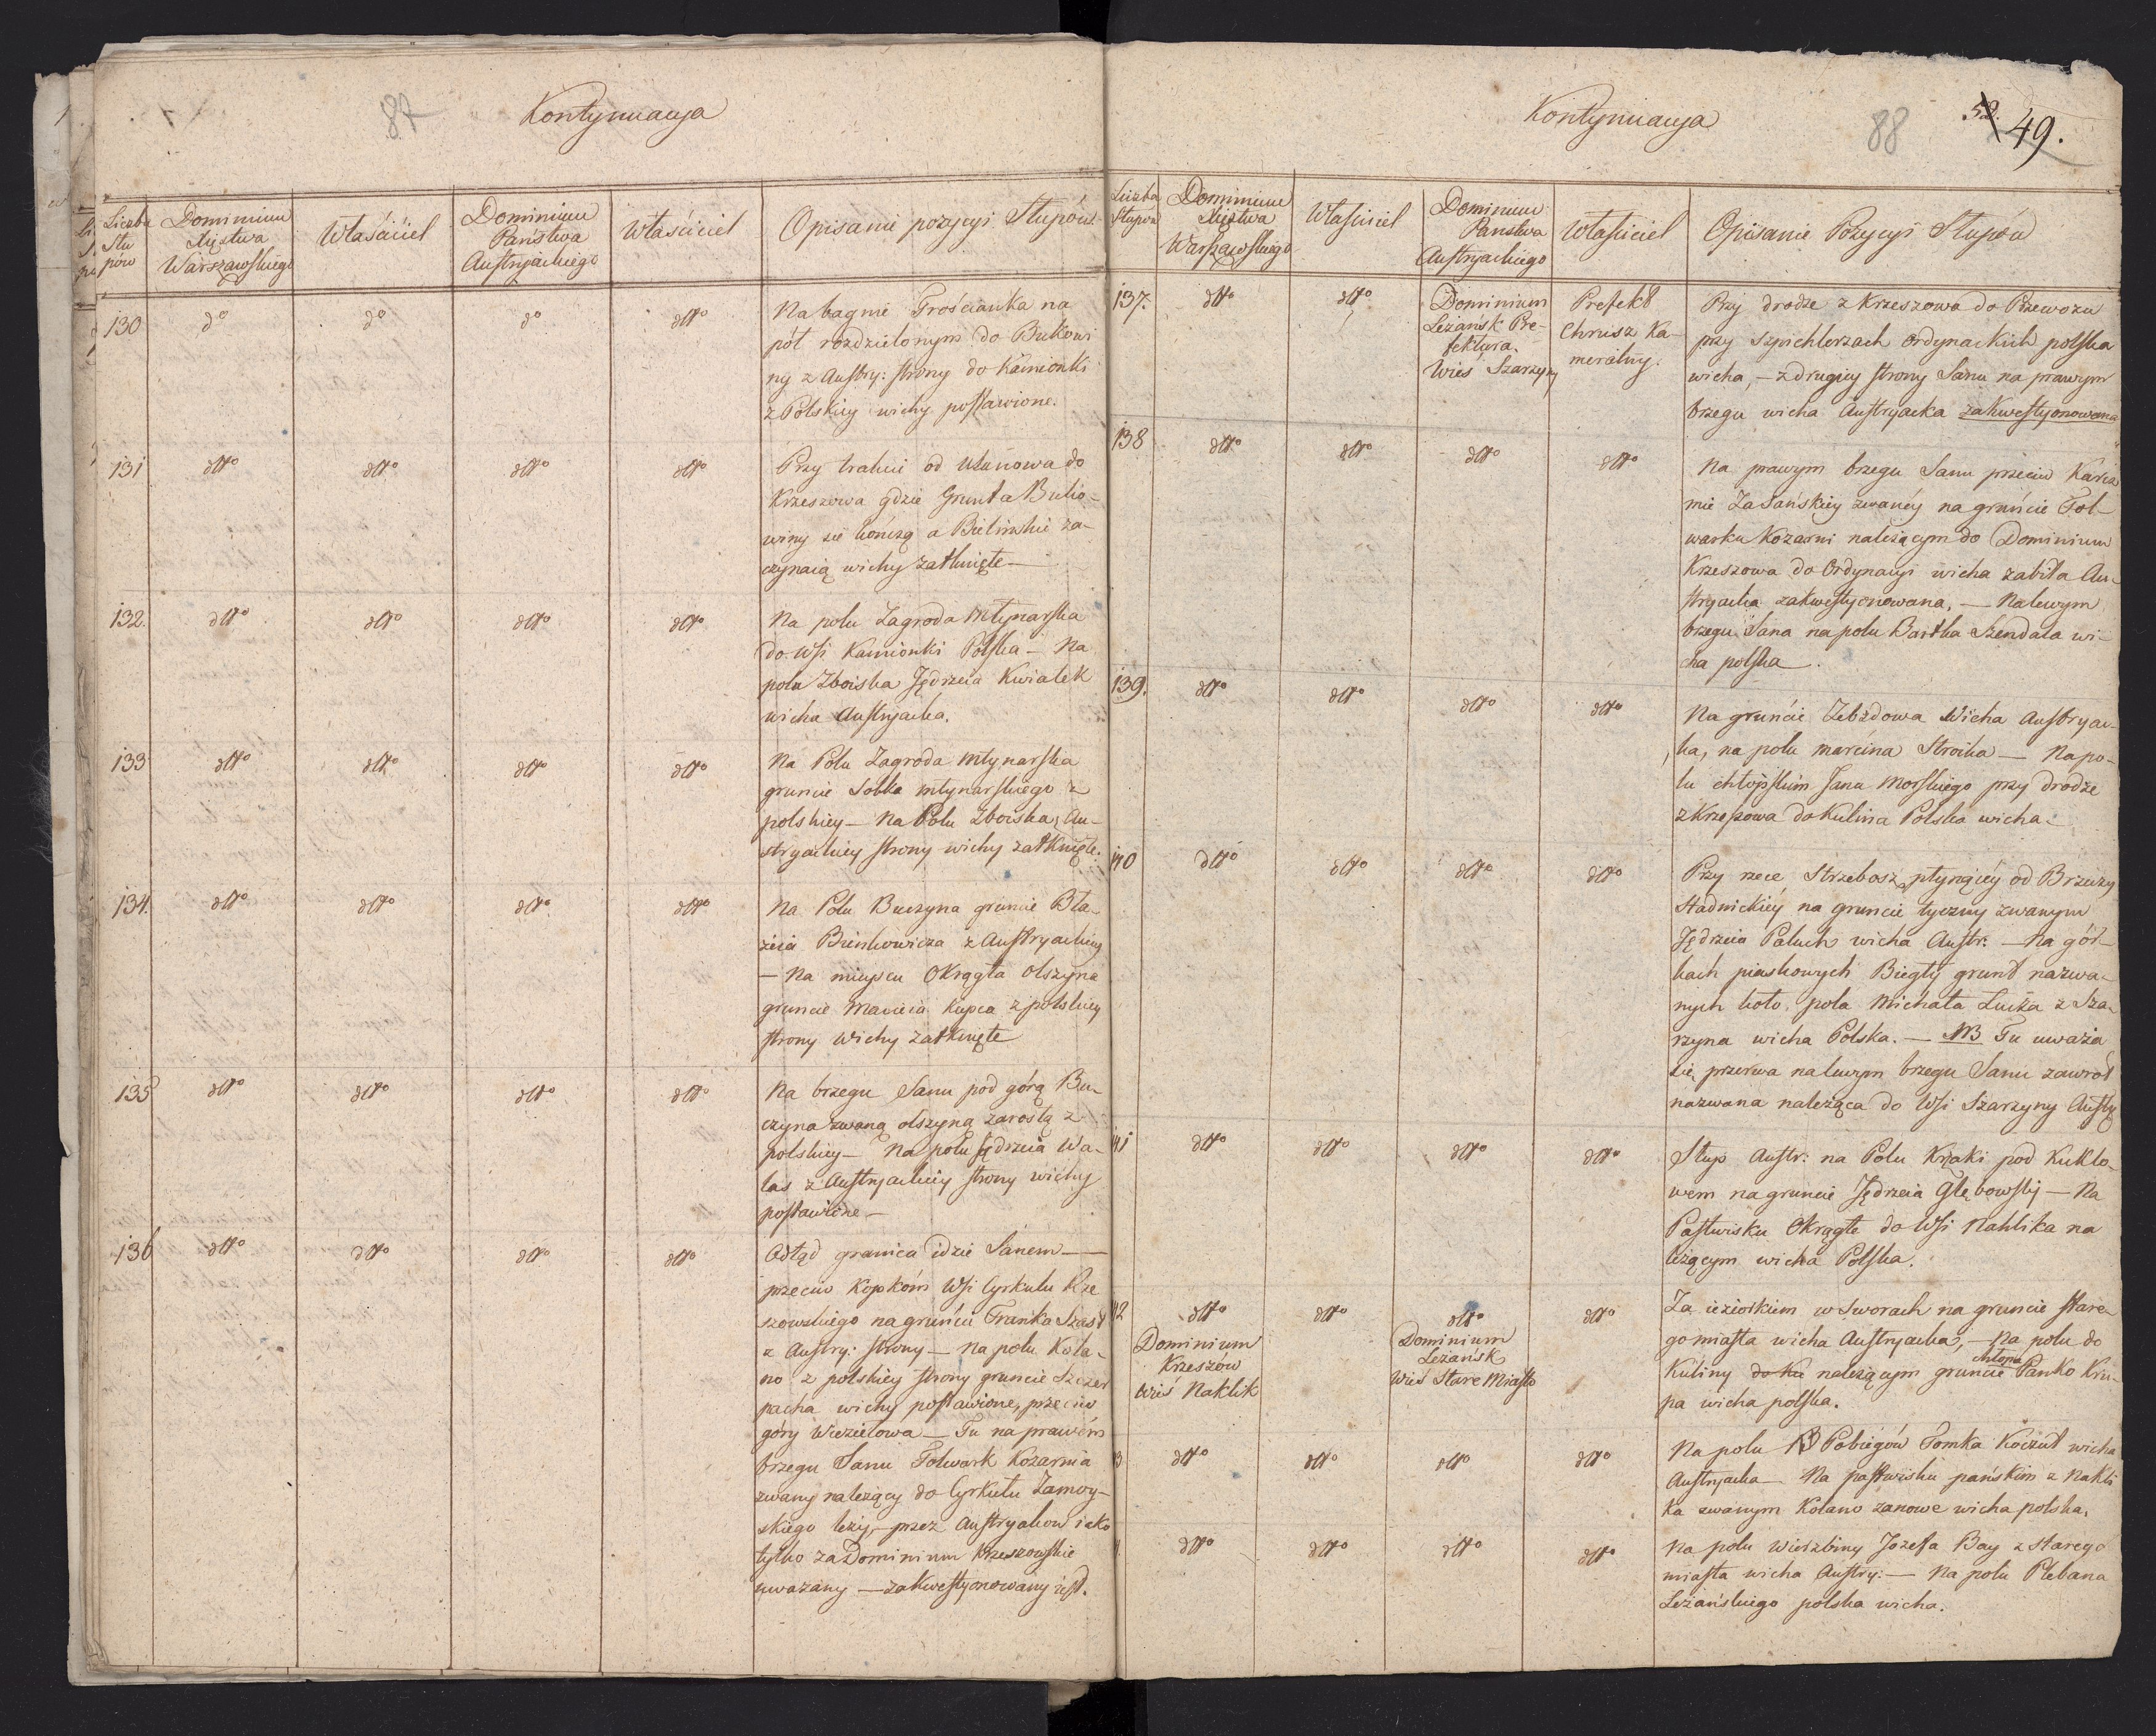 87
Kontynuacya
Liczba Stu pów
Dominium Xięstwa Warszawskiego
Właściciel
Dominium Państwa Austryackiego
Właściciel
Opisanie pozycyi Słupów
130 do do do dtto
Na bagnie Trościanka na
pół rozdzielonym do Bukowi
ny z Austry: strony do Kamionki
z Polskiey wichy postawione.
131 dtto dtto dtto dtto
Przy trakcie od Ulanowa do
Krzeszowa gdzie Grunta Buko-
winy się kończą a Bielinskie za-
czynaią wichy zatknięte —
132. dtto dtto dtto dtto
Na polu Zagroda Młynarska
do Wsi Kamionki Polska — Na
polu Zboiska Jędrzeia Kwiatek
wicha Austryacka.
133 dtto dtto dtto dtto
Na Polu Zagroda Młynarska
gruncie Sobka młynarskiego z
polskiey — Na Polu Zboiska, Au-
stryackiey strony wichy zatknięte.
134. dtto dtto dtto dtto
Na Polu Buczyna gruncie Bła-
żeia Bieńkowicza z Austryackiey
— Na mieyscu Okrągła olszyna
gruncie Macieia Kupca z polskiey
strony wichy zatknięte
135 dtto dtto dtto dtto
Na brzegu Sanu pod górą Bu-
czyna zwaną olszyną zarosłą z
polskiey — Na polu Jędrzeia Wa-
las z Austryackiey strony wichy
postawione —
136 dtto dtto dtto dtto
Odtąd granica idzie Sanem —
przeciw Kopkóm Wsi Cyrkułu Rze
szowskiego na gruncie Franka Szast
z Austry: strony — na polu Kola-
no z polskiey strony gruncie Szczer
pacha wichy postawione, przeciw
góry Wiezielowa — Tu na prawém
brzegu Sanu Folwark Kozarnia
zwany należący do Cyrkułu Zamoy-
skiego leży, — przez Austryakow iako
tylko za Dominium Krzeszowskie
uważany — zakwestyonowany iest.
Kontynuacya
88
52. 49.
Liczba Słupów
Dominium Xięstwa Warszawskiego
Właściciel
Dominium Panstwa Austryackiego
Właściciel
Opisanie Pozycyi Słupów
137. dtto dtto
Dominium
Leżańsk Pre-
fektura.
Wieś Szarzyny
Prefekt
Chrusz Ka-
meralny.
Przy drodze z Krzeszowa do Przewozu
przy szpichlerzach Ordynackich polska
wicha, — z drugiey strony Sanu na prawym
brzegu wicha Austryacka zakwestyonowana
138 dtto dtto dtto dtto
Na prawym brzegu Sanu przeciw Karcz
mie Zasańskiey zwanéy na gruńcie Fol-
warku Kozarni należącym do Dominium
Krzeszowa do Ordynacyi wicha zabita Au-
stryacka zakwestyonowana, — Na lewym
brzegu Sana na polu Bartka Szendała wi-
cha polska.
139. dtto dtto dtto dtto
Na gruńcie Zebzdowa Wicha Austryac-
ka, na polu marcina Stroika — Na po-
lu chłopskim Jana Morskiego przy drodze
z Krzeszowa do Kulina Polska wicha.
140 dtto dtto dtto dtto
Przy rzece Strzebosz płynącéy od Brzuzy
Stadnickiéy na gruncie tyczny zwanym
Jędrzeia Paluch wicha Austr: — Na gór-
kach piaskowych Biegły grunt nazwa-
nych koło pola Michała Łuiża z Sza-
rzyna wicha Polska. — NB Tu uważa
się przerwa na lewym brzegu Sanu zawrot
nazwana należąca do Wsi Szarzyny Austry
141 dtto dtto dtto dtto
Słup Austr: na Polu Krzaki pod Kukło-
wem na gruncie Jędrzeia Głębowskij — Na
Pastwisku Okrągłe do Wsi Naklika na
leżącym wicha Polska.
42 dtto dtto dtto dtto
Dominium
Krzeszów
Wieś Naklik
Dominium
Leżańsk
Wieś Stare Miasto
Za ieziorkiem w Sworach na gruncie stare-
go miasta wicha Austryacka, — Na polu do
Kuliny do Ku należącym gruncie chłopa Panko Kru-
pa wicha polska.
3 dtto dtto dtto dtto
Na polu Pobiegów Tomka Kocżut wicha
Austryacka — Na pastwisku pańskim z Nakli
ka zwanym Kolano zanowe wicha polska.
dtto dtto dtto dtto
Na polu Wierzbiny Jozefa Bay z starego
miasta wicha Austry: — Na polu Plebana
Leżańskiego polska wicha.